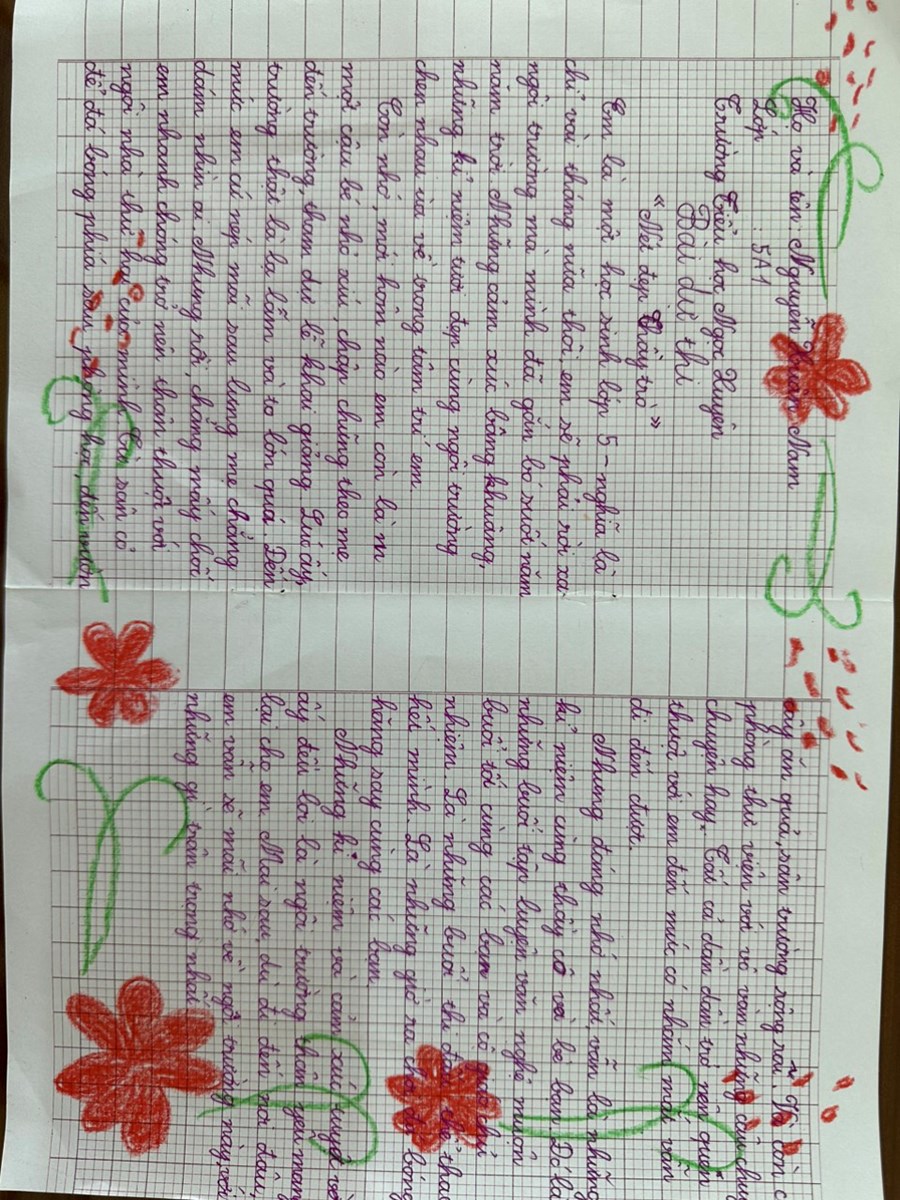 Họ và tên: Nguyễn Xuân Nam
Lớp : 5A1
Trường Tiểu học Ngọc Xuyên
Bài dự thi
"Nét đẹp thầy trò"
Em là một học sinh lớp 5 - nghĩa là
chỉ vài tháng nữa thôi, em sẽ phải rời xa
ngôi trường mà mình đã gắn bó suốt năm
năm trời. Những cảm xúc bâng khuâng,
những kỉ niệm tươi đẹp cùng ngôi trường
chen nhau ùa về trong tâm trí em.
Còn nhớ, mới hôm nào em còn là
một cậu bé nhỏ xíu, chập chững theo mẹ
đến trường tham dự lễ khai giảng. Lúc ấy,
trường thật là lạ lẫm và to lớn quá. Đến
mức em cứ nép mãi sau lưng mẹ chẳng
dám nhìn ai. Nhưng rồi, chẳng mấy chốc
em nhanh chóng trở nên thân thuộc với
ngôi nhà thứ hai của mình. Còn sân cỏ
để đá bóng phía sau phòng học, đến vườn
cây ăn quả, sân trường rộng rãi. Rồi còn
phòng thư viện với vô vàn những câu
chuyện hay. Tất cả dần dần trở nên quen
thuộc với em đến mức có nhắm mắt vẫn
đi đến được.
Nhưng đáng nhớ nhất, vẫn là những
kỉ niệm cùng thầy cô và bè bạn. Đó là
những buổi tập luyện văn nghệ muộn
buổi tối cùng các bạn và cô giáo chủ
nhiệm. Là những buổi thi đấu thể thao
hết mình. Là những giờ ra chơi đá bóng
hăng say cùng các bạn.
Những kỉ niệm và cảm xúc tuyệt vời
ấy đều bởi là ngôi trường thân yêu mang
lại cho em. Mai sau, dù đi đến nơi đâu,
em vẫn sẽ mãi nhớ về ngôi trường này, với
những gì trân trọng nhất.